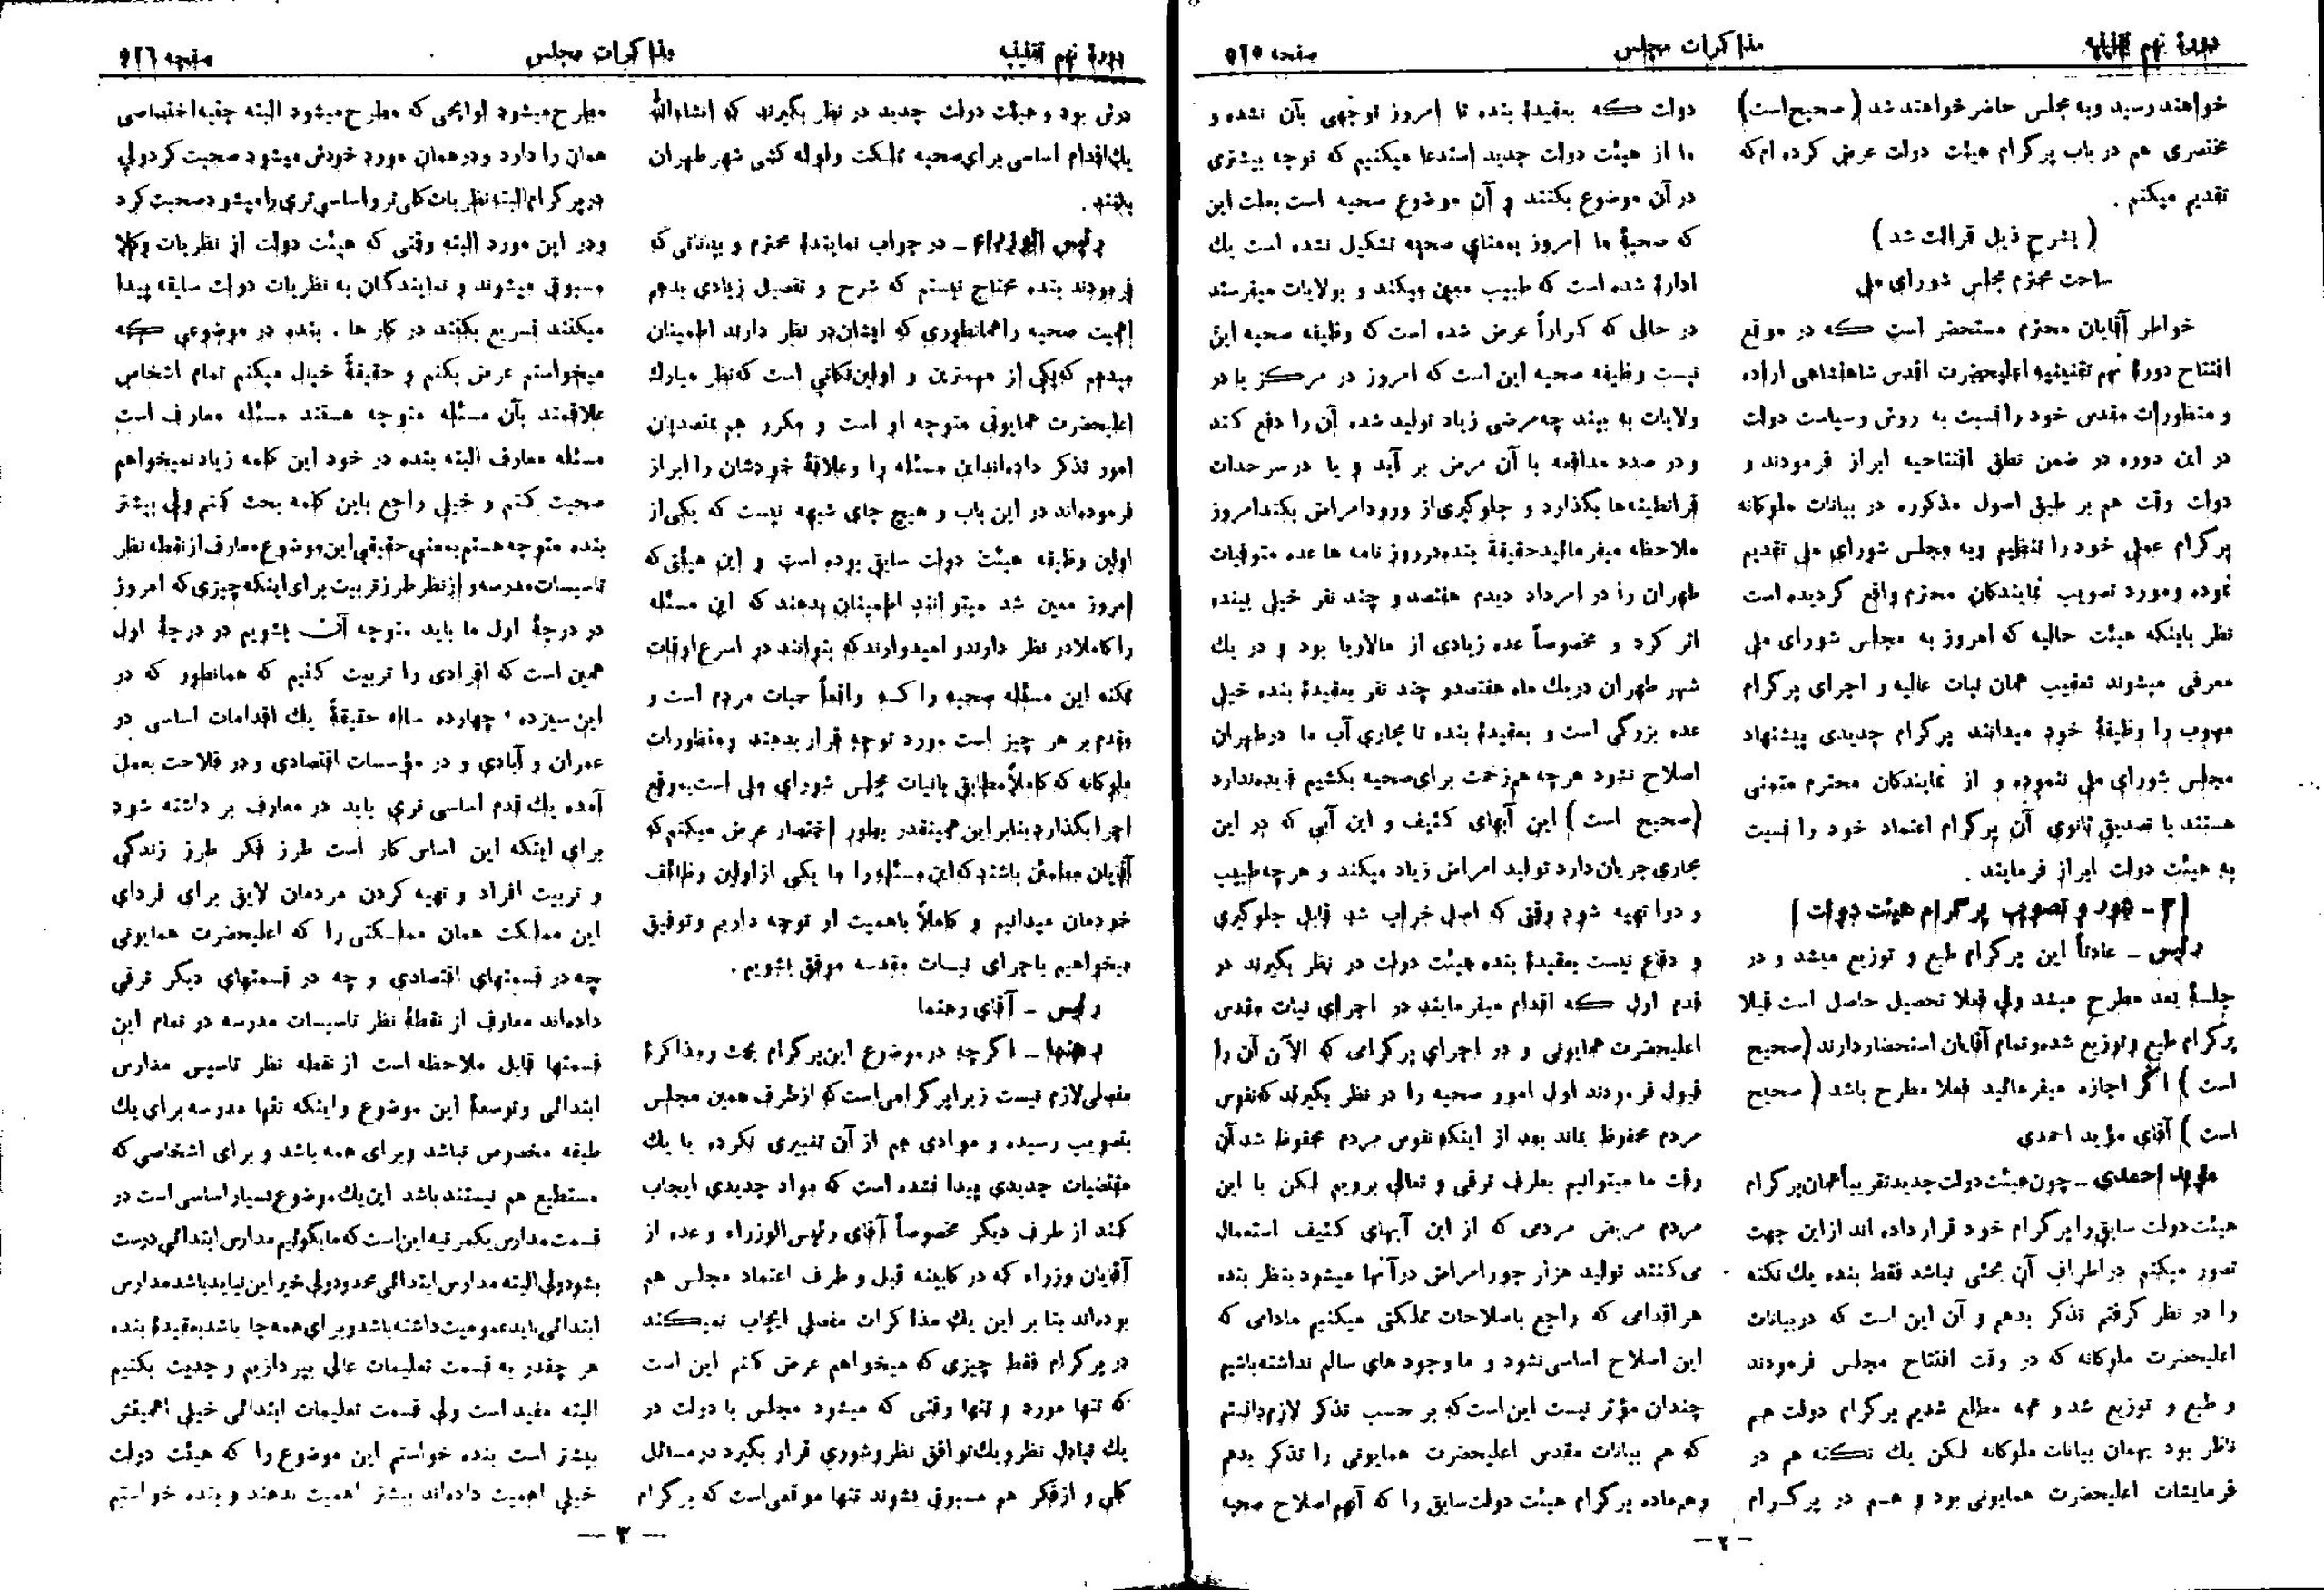 دورهٔ نهم تقنینیه
مذاکرات مجلس
صفحه ٥١٥
خواهند رسید و به مجلس حاضر خواهند شد (صحیح است)
مختصری هم در باب پرگرام هیئت دولت عرض کرده‌ام که
تقدیم میکنم .
(بشرح ذیل قرائت شد)
ساحت محترم مجلس شورای ملی
خواطر آقایان محترم مستحضر است که در موقع
افتتاح دورهٔ نهم تقنینیه اعلیحضرت اقدس شاهنشاهی اراده
و منظورات مقدس خود را نسبت به روش و سیاست دولت
در این دوره در ضمن نطق افتتاحیه ابراز فرمودند و
دولت وقت هم بر طبق اصول مذکوره در بیانات ملوکانه
پرگرام عملی خود را تنظیم و به مجلس شورای ملی تقدیم
نموده و مورد تصویب نمایندگان محترم واقع گردیده است
نظر باینکه هیئت حالیه که امروز به مجلس شورای ملی
معرفی میشوند تعقیب همان نیات عالیه و اجرای پرگرام
مصوب را وظیفهٔ خود میدانند پرگرام جدیدی پیشنهاد
مجلس شورای ملی ننموده و از نمایندگان محترم متمنی
هستند با تصدیق ثانوی آن پرگرام اعتماد خود را نسبت
به هیئت دولت ابراز فرمایند .
[٣ ـ شور و تصویب پرگرام هیئت دولت]
رئیس ـ عادتاً این پرگرام طبع و توزیع میشد و در
جلسهٔ بعد مطرح میشد ولی فعلا تحصیل حاصل است قبلا
پرگرام طبع و توزیع شده و تمام آقایان استحضار دارند (صحیح
است) اگر اجازه میفرمائید فعلا مطرح باشد (صحیح
است) آقای مؤید احمدی
مؤید احمدی ـ چون هیئت دولت جدید تقریباً همان پرگرام
هیئت دولت سابق را پرگرام خود قرار داده اند از این جهت
تصور میکنم در اطراف آن بحثی نباشد فقط بنده یك نکته
را در نظر گرفتم تذکر بدهم و آن این است که در بیانات
اعلیحضرت ملوکانه که در وقت افتتاح مجلس فرمودند
و طبع و توزیع شد و همه مطلع شدیم پرگرام دولت هم
ناظر بود بهمان بیانات ملوکانه لکن یك نکته هم در
فرمایشات اعلیحضرت همایونی بود و هم در پرگرام
دولت که بعقیدهٔ بنده تا امروز توجهی بآن نشده و
ما از هیئت دولت جدید استدعا میکنیم که توجه بیشتری
در آن موضوع بکنند و آن موضوع صحیه است بعلت این
که صحیهٔ ما امروز بمعنای صحیه تشکیل نشده است یك
ادارهٔ شده است که طبیب معین میکند و بولایات میفرستد
در حالی که کراراً عرض شده است که وظیفه صحیه این
نیست وظیفه صحیه این است که امروز در مرکز یا در
ولایات به بیند چه مرضی زیاد تولید شده آن را دفع کند
و در صدد مدافعه با آن مرض بر آید و یا در سرحدات
قرانطینه‌ها بگذارد و جلوگیری از ورود امراض بکند امروز
ملاحظه میفرمائید حقیقةً بنده در روزنامه ها عده متوفیات
طهران را در امرداد دیدم هفتصد و چند نفر خیلی ببنده
اثر کرد و مخصوصاً عده زیادی از مالاریا بود و در یك
شهر طهران در یك ماه هفتصد و چند نفر بعقیدهٔ بنده خیلی
عده بزرگی است و بعقیدهٔ بنده تا مجاری آب ما در طهران
اصلاح نشود هر چه هم زحمت برای صحیه بکشیم فایده ندارد
(صحیح است) این آبهای کثیف و این آبی که در این
مجاری جریان دارد تولید امراض زیاد میکند و هر چه طبیب
و دوا تهیه شود وقتی که اصل خراب شد قابل جلوگیری
و دفاع نیست بعقیدهٔ بنده هیئت دولت در نظر بگیرند در
قدم اول که اقدام میفرمایند در اجرای نیات مقدس
اعلیحضرت همایونی و در اجرای پرگرامی که الآن آن را
قبول فرمودند اول امور صحیه را در نظر بگیرند که نفوس
مردم محفوظ بماند بعد از اینکه نفوس مردم محفوظ شد آن
وقت ما میتوانیم بطرف ترقی و تعالی برویم لکن با این
مردم مریض مردمی که از این آبهای کثیف استعمال
می کنند تولید هزار جور امراض در آنها میشود بنظر بنده
هر اقدامی که راجع باصلاحات مملکتی میکنیم مادامی که
این اصلاح اساسی نشود و ما وجودهای سالم نداشته باشیم
چندان مؤثر نیست این است که بر حسب تذکر لازم دانستم
که هم بیانات مقدس اعلیحضرت همایونی را تذکر بدهم
و هم ماده پرگرام هیئت دولت سابق را که آنهم اصلاح صحیه
— ٢ —
دورهٔ نهم تقنینیه
مذاکرات مجلس
صفحه ٥١٦
درش بود و هیئت دولت جدید در نظر بگیرند که انشاءالله
یك اقدام اساسی برای صحیه مملکت و لوله کشی شهر طهران
بکنند .
رئیس الوزراء ـ در جواب نماینده محترم و بیاناتی که
فرمودند بنده محتاج نیستم که شرح و تفصیل زیادی بدهم
اهمیت صحیه را همانطوری که ایشان در نظر دارند اطمینان
میدهم که یکی از مهمترین و اولین نکاتی است که نظر مبارك
اعلیحضرت همایونی متوجه او است و مکرر هم بمتصدیان
امور تذکر داده‌اند این مسئله را و علاقهٔ خودشان را ابراز
فرموده‌اند در این باب و هیچ جای شبهه نیست که یکی از
اولین وظیفه هیئت دولت سابق بوده است و این هیئتی که
امروز معین شد میتوانند اطمینان بدهند که این مسئله
را کاملا در نظر دارند و امیدوارند که بتوانند در اسرع اوقات
ممکنه این مسئله صحیه را که واقعاً حیات مردم است و
مقدم بر هر چیز است مورد توجه قرار بدهند و منظورات
ملوکانه که کاملاً مطابق با نیات مجلس شورای ملی است بموقع
اجرا بگذارد بنابراین همینقدر بطور اختصار عرض میکنم که
آقایان مطمئن باشند که این مسئله را ما یکی از اولین وظائف
خودمان میدانیم و کاملاً باهمیت او توجه داریم و توفیق
میخواهیم باجرای نیات مقدسه موفق بشویم .
رئیس ـ آقای رهنما
رهنما ـ اگر چه در موضوع این پرگرام بحث و مذاکرهٔ
مفصلی لازم نیست زیرا پرگرامی است که از طرف همین مجلس
بتصویب رسیده و موادی هم از آن تغییری نکرده یا یك
مقتضیات جدیدی پیدا نشده است که مواد جدیدی ایجاب
کند از طرف دیگر مخصوصاً آقای رئیس الوزراء و عده از
آقایان وزراء که در کابینه قبل و طرف اعتماد مجلس هم
بوده‌اند بنا بر این یك مذاکرات مفصلی ایجاب نمیکند
در پرگرام فقط چیزی که میخواهم عرض کنم این است
که تنها مورد و تنها وقتی که میشود مجلس با دولت در
یك تبادل نظر و یك توافق نظر و شوری قرار بگیرد در مسائل
کلی و از فکر هم مسبوق بشوند تنها موقعی است که پرگرام
مطرح میشود لوایحی که مطرح میشود البته جنبه اختصاصی
همان را دارد و در همان مورد خودش میشود صحبت کرد ولی
در پرگرام البته نظریات کلی تر و اساسی تری را میشود صحبت کرد
و در این مورد البته وقتی که هیئت دولت از نظریات وکلا
مسبوق میشوند و نمایندگان به نظریات دولت سابقه پیدا
میکنند تسریع بکنند در کار ها . بنده در موضوعی که
میخواستم عرض بکنم و حقیقةً خیال میکنم تمام اشخاص
علاقمند بآن مسئله متوجه هستند مسئله معارف است
مسئله معارف البته بنده در خود این کلمه زیاد نمیخواهم
صحبت کنم و خیلی راجع باین کلمه بحث کنم ولی بیشتر
بنده متوجه هستم بمعنی حقیقی این موضوع معارف از نقطه نظر
تاسیسات مدرسه و از نظر طرز تربیت برای اینکه چیزی که امروز
در درجهٔ اول ما باید متوجه آن بشویم در درجهٔ اول
همین است که افرادی را تربیت کنیم که همانطور که در
این سیزده ، چهارده ساله حقیقةً یك اقدامات اساسی در
عمران و آبادی و در مؤسسات اقتصادی و در فلاحت بعمل
آمده یك قدم اساسی تری باید در معارف بر داشته شود
برای اینکه این اساس کار است طرز فکر طرز زندگی
و تربیت افراد و تهیه کردن مردمان لایق برای فردای
این مملکت همان مملکتی را که اعلیحضرت همایونی
چه در قسمتهای اقتصادی و چه در قسمتهای دیگر ترقی
داده‌اند معارف از نقطهٔ نظر تاسیسات مدرسه در تمام این
قسمتها قابل ملاحظه است از نقطه نظر تاسیس مدارس
ابتدائی و توسعهٔ این موضوع و اینکه تنها مدرسه برای یك
طبقه مخصوص نباشد و برای همه باشد و برای اشخاصی که
مستطیع هم نیستند باشد این یك موضوع بسیار اساسی است در
قسمت مدارس یکمرتبه این است که ما بگوئیم مدارس ابتدائی درست
بشود ولی البته مدارس ابتدائی محدود ولی خیر این نباید باشد مدارس
ابتدائی باید عمومیت داشته باشد و برای همه جا باشد بعقیدهٔ بنده
هر چقدر به قسمت تعلیمات عالی بپردازیم و جدیت بکنیم
البته مفید است ولی قسمت تعلیمات ابتدائی خیلی اهمیتش
بیشتر است بنده خواستم این موضوع را که هیئت دولت
خیلی اهمیت داده‌اند بیشتر اهمیت بدهند و بنده خواستم
— ٣ —